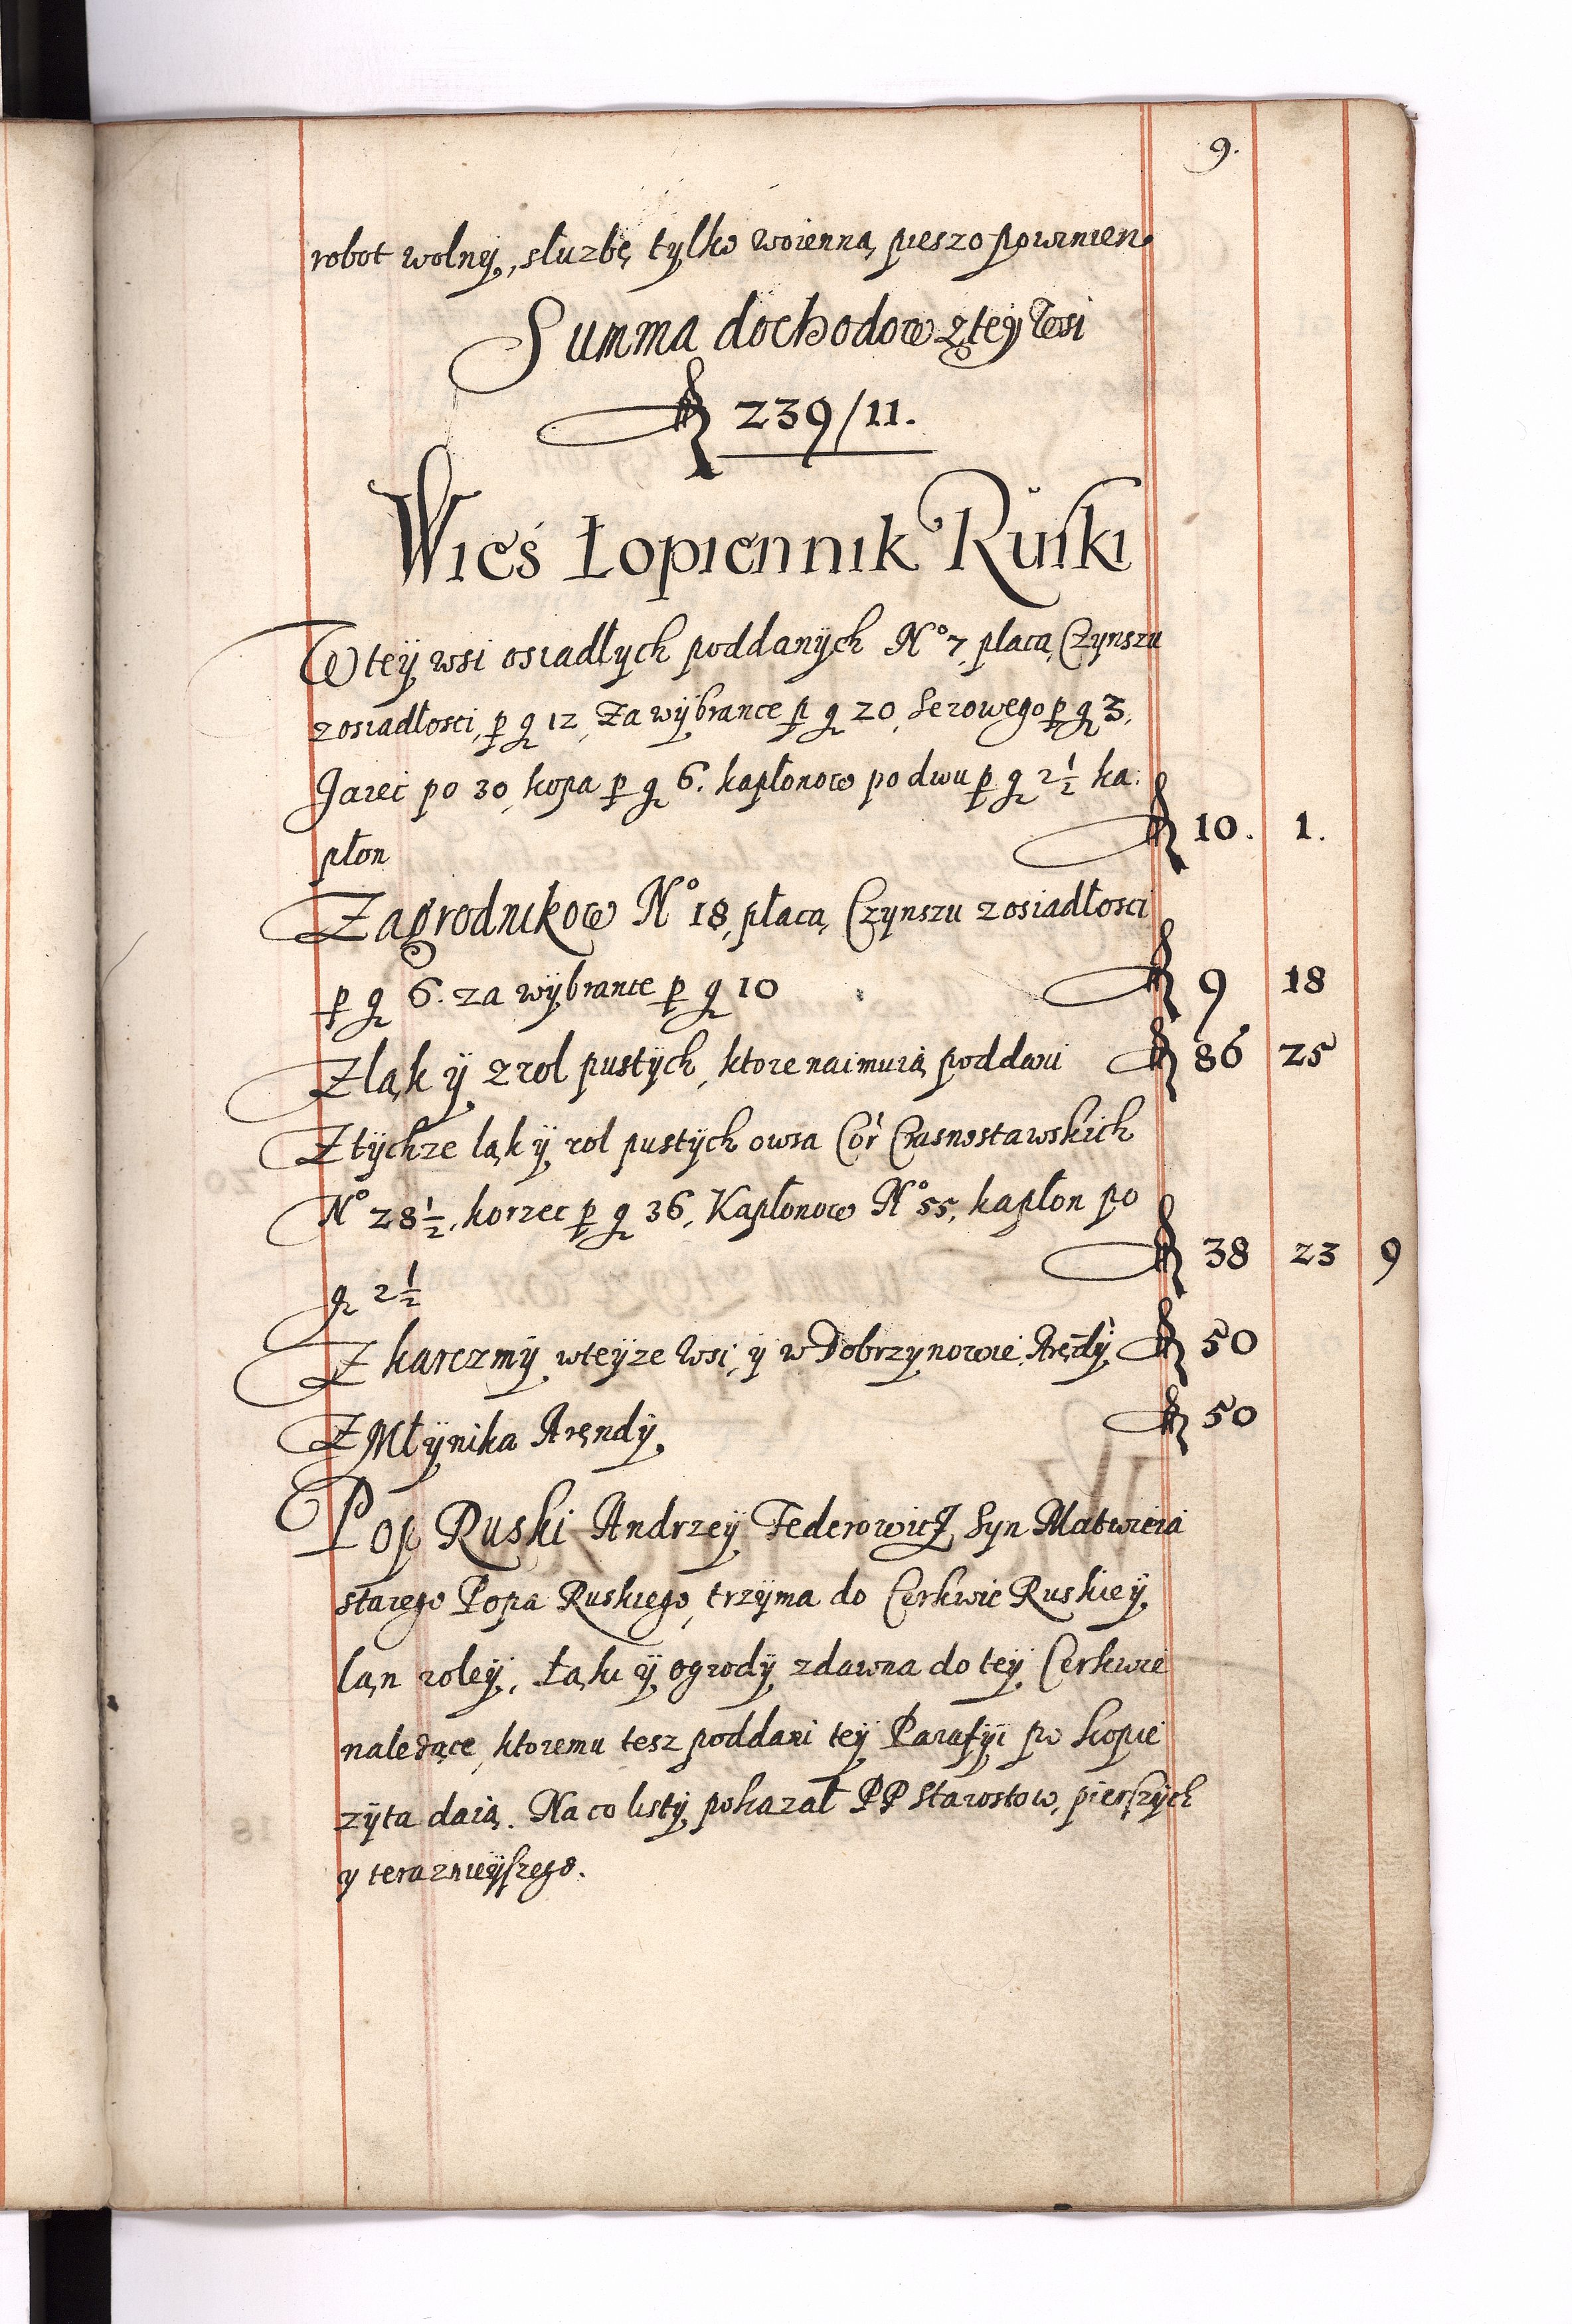 9.
robot wolny, służbę tylko woienną pieszo powinien.
Summa dochodow z tey wsi
fl 239/11.
Wieś Łopiennik Ruski
W tey wsi osiadłych poddanÿch No 7, płacą Czynszu
z osiadłosci, p g 12, Za wÿbrance p g 20, Serowego p g 3,
Jaiec po 30, kopa p g 6. kapłonow po dwu p g 2½ ka:
płon fl 10. 1.
Zagrodnikow No 18, płacą Czynszu z osiadłosci
p g 6. za wÿbrance p g 10 fl 9 18
Z łąk ÿ z rol pustÿch, ktore naimuią poddani fl 86 25
Z tÿchze łąk ÿ rol pustÿch owsa Cor Crasnostawskich
No 28½, korzec p g 36, Kapłonow No 55, kapłon po
g 2½ fl 38 23 9
Z karczmÿ w teÿze wsi, ÿ w Dobrzynowie Arędÿ fl 50
Z Młÿnika Arendÿ fl 50
Pop Ruski Andrzeÿ Federowicz Syn Matwieia
starego Popa Ruskiego, trzÿma do Cerkwie Ruskieÿ
łan roleÿ, Łąki ÿ ogrodÿ zdawna do teÿ Cerkwie
należące, ktoremu tesz poddani teÿ Parafÿi po kopie
zÿta daią. Na co listÿ pokazał PP Starostow, pierszÿch
y teraznieÿszego.